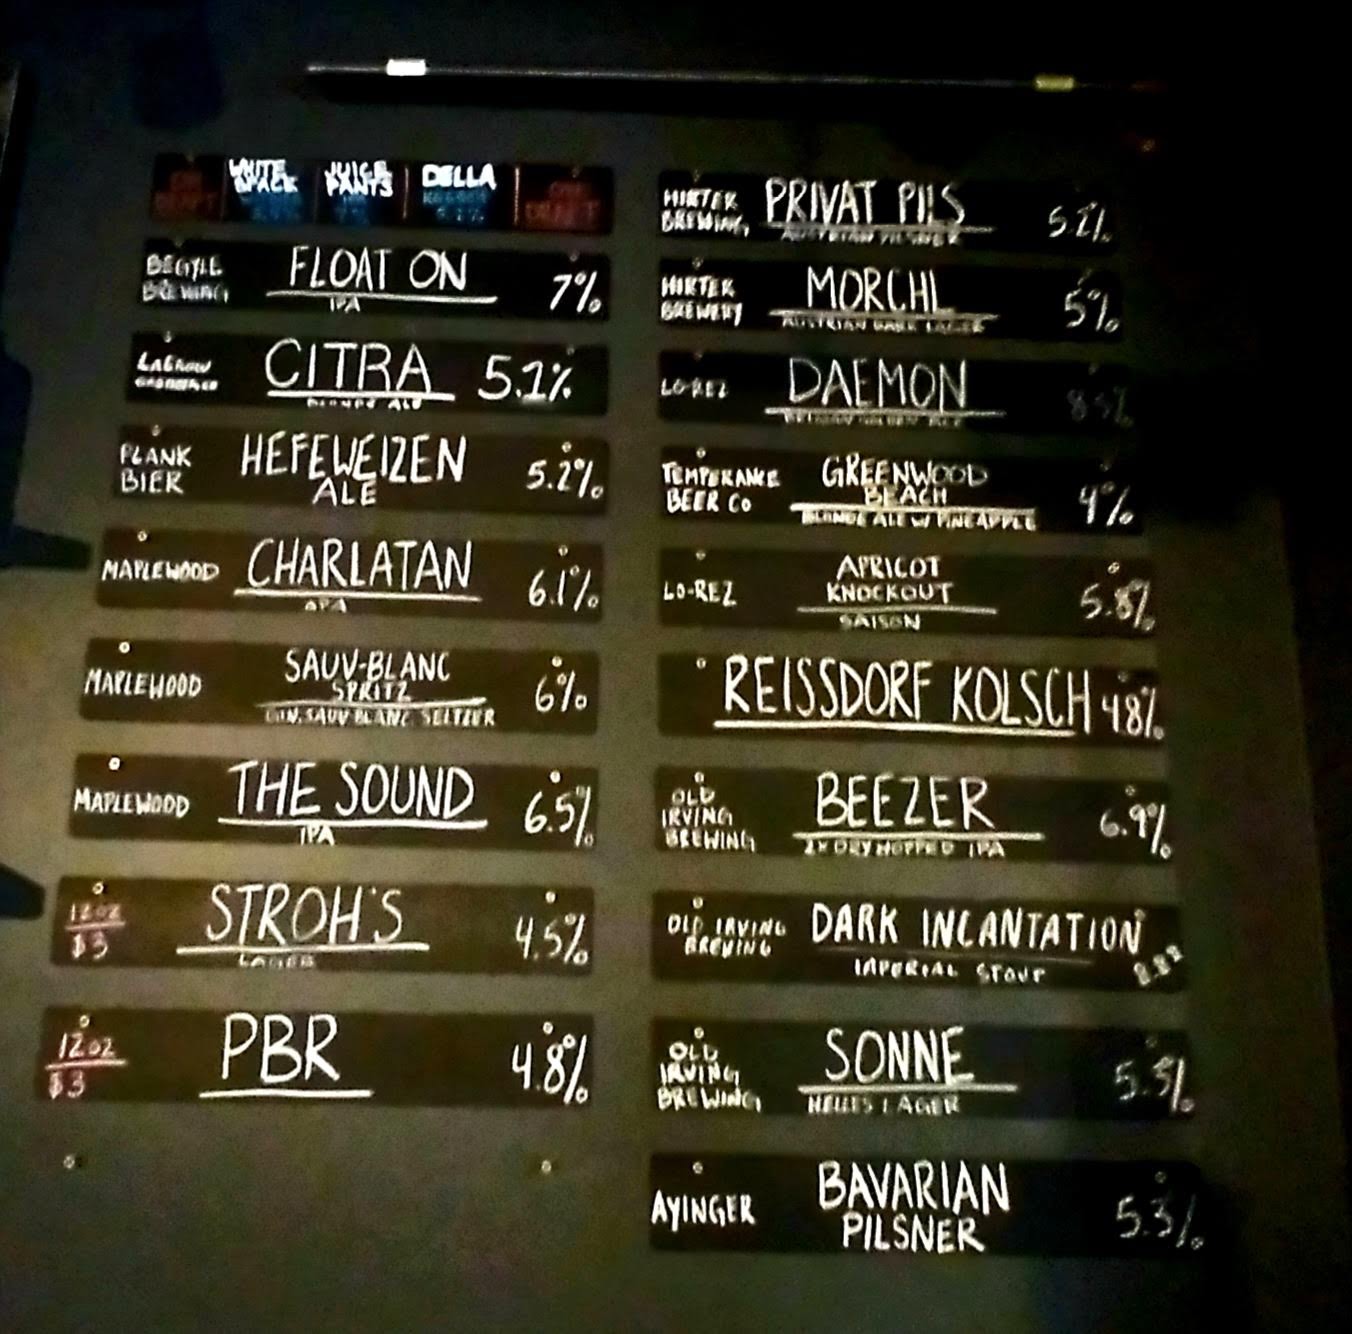 ON DRAFT WHITE JUICE PANTS DELLA ON DRAFT
BEGYLE BREWING FLOAT ON 7%
IPA
CITRA 5.1%
BLONDE ALE
PLANK BIER HEFEWEIZEN ALE 5.2%
MAPLEWOOD CHARLATAN 6.1%
APA
MAPLEWOOD SAUV-BLANC SPRITZ 6%
SAUV BLANC SELTZER
MAPLEWOOD THE SOUND 6.5%
IPA
12oz $3 STROH'S 4.5%
LAGER
12oz $3 PBR 4.8%
HIRTER BREWING PRIVAT PILS 5.2%
AUSTRIAN PILSNER
HIRTER BREWERY MORCHL 5%
AUSTRIAN DARK LAGER
LO-REZ DAEMON
BELGIAN GOLDEN ALE
TEMPERANCE BEER CO GREENWOOD BEACH 4%
BLONDE ALE W/ PINEAPPLE
LO-REZ APRICOT KNOCKOUT 5.8%
SAISON
REISSDORF KOLSCH 4.8%
OLD IRVING BREWING BEEZER 6.9%
2X DRY HOPPED IPA
OLD IRVING BREWING DARK INCANTATION
IMPERIAL STOUT
OLD IRVING BREWING SONNE 5.5%
HELLES LAGER
AYINGER BAVARIAN PILSNER 5.3%